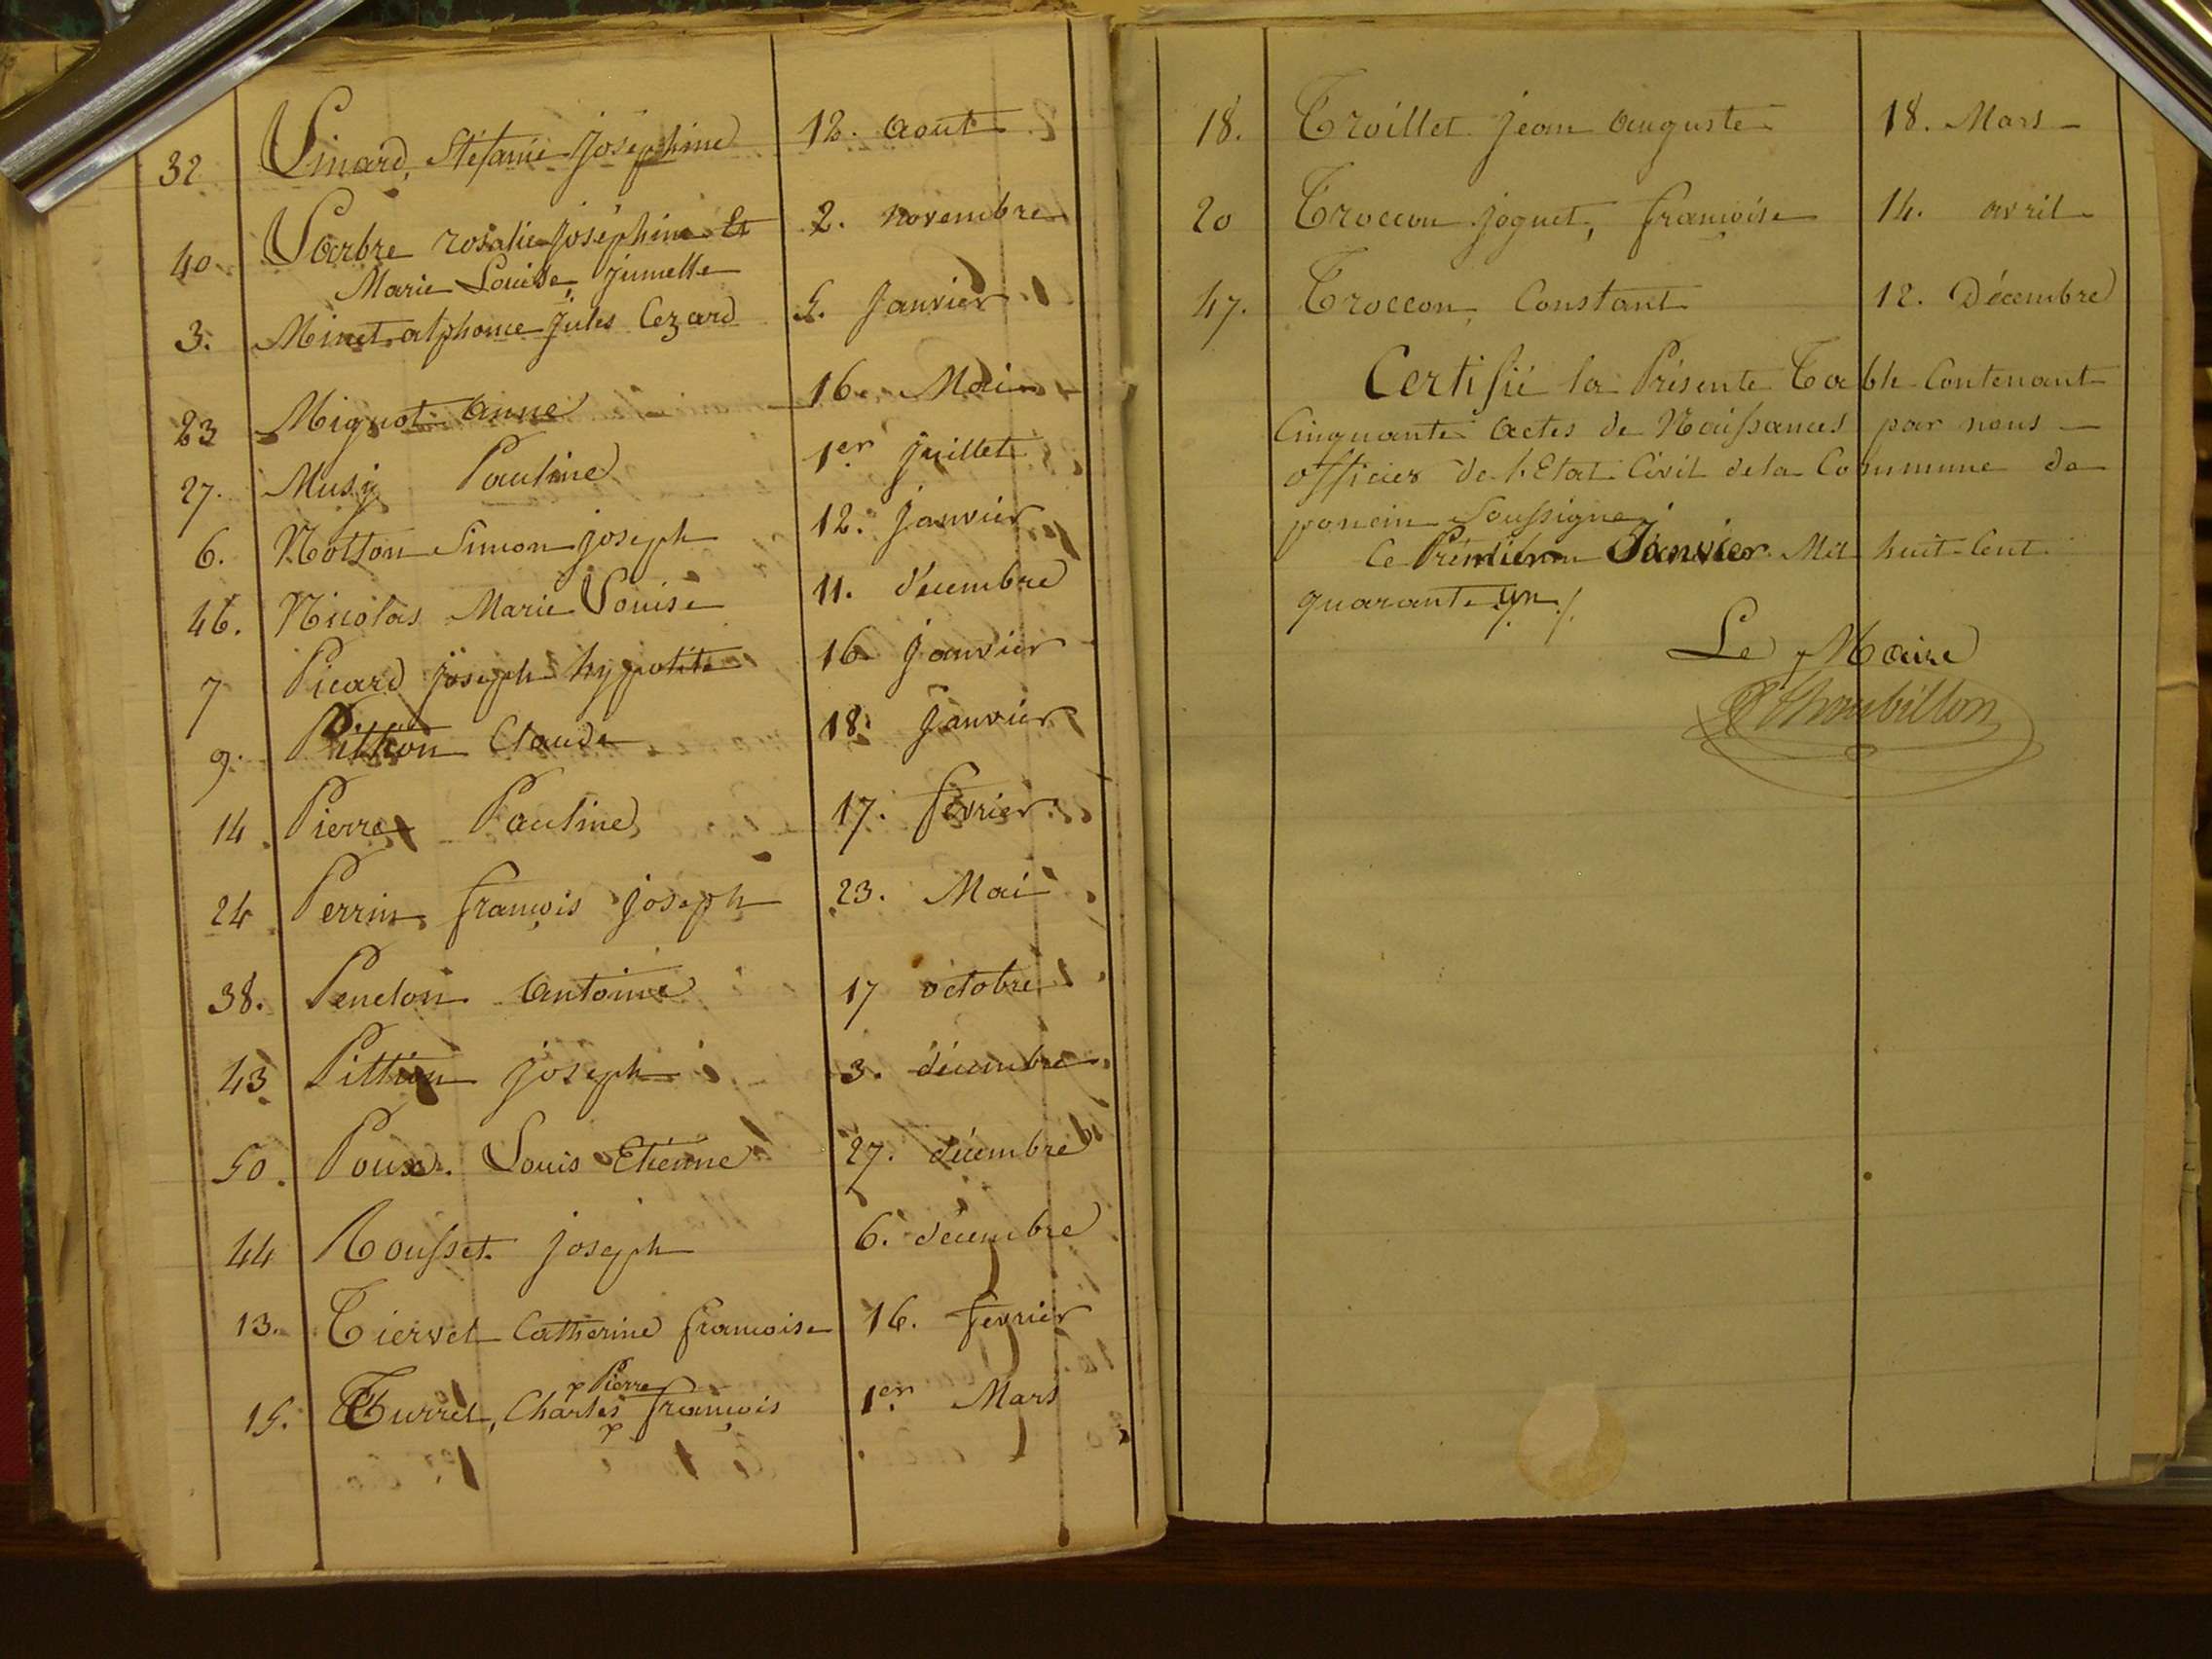 32 Linard, Stéfanie Joséphine 12. Aout
40 Larbre rosalie Joséphine Et 2. novembre
Marie Louise, Jumelle
3. Minet alphonse Jules Cezard 5. Janvier
23 Mignot Anne 16. Mai
27. Musy Pauline 1er Juillet
6. Notton Simon joseph 12. Janvier
46. Nicolas Marie Louise 11. décembre
7 Picard joseph hypolite 16 Janvier
9. Pittion Claude 18. Janvier
14. Pierre Pauline 17. février
24 Perrin françois joseph 23. Mai
38. Penelon Antoine 17 octobre
43 Pittion joseph 3. décembre
50. Poux. Louis Etienne 27. décembre
44 Rousset joseph 6. décembre
13. Tiervet Catherine francoise 16. fevrier
Pierre
15. Turrel, Charles françois 1er Mars
18. Troillet jean Auguste 18. Mars
20 Troccon joguet, françoise 14. avril
47. Troccon, Constant 12. Décembre
Certifié la Présente Table Contenant
Cinquante Actes de Naissances par nous
officier de l'Etat Civil de la Commune de
poncin Soussigné
Ce Prémier Janvier Mil huit Cent
quarante un ./.
Le Maire